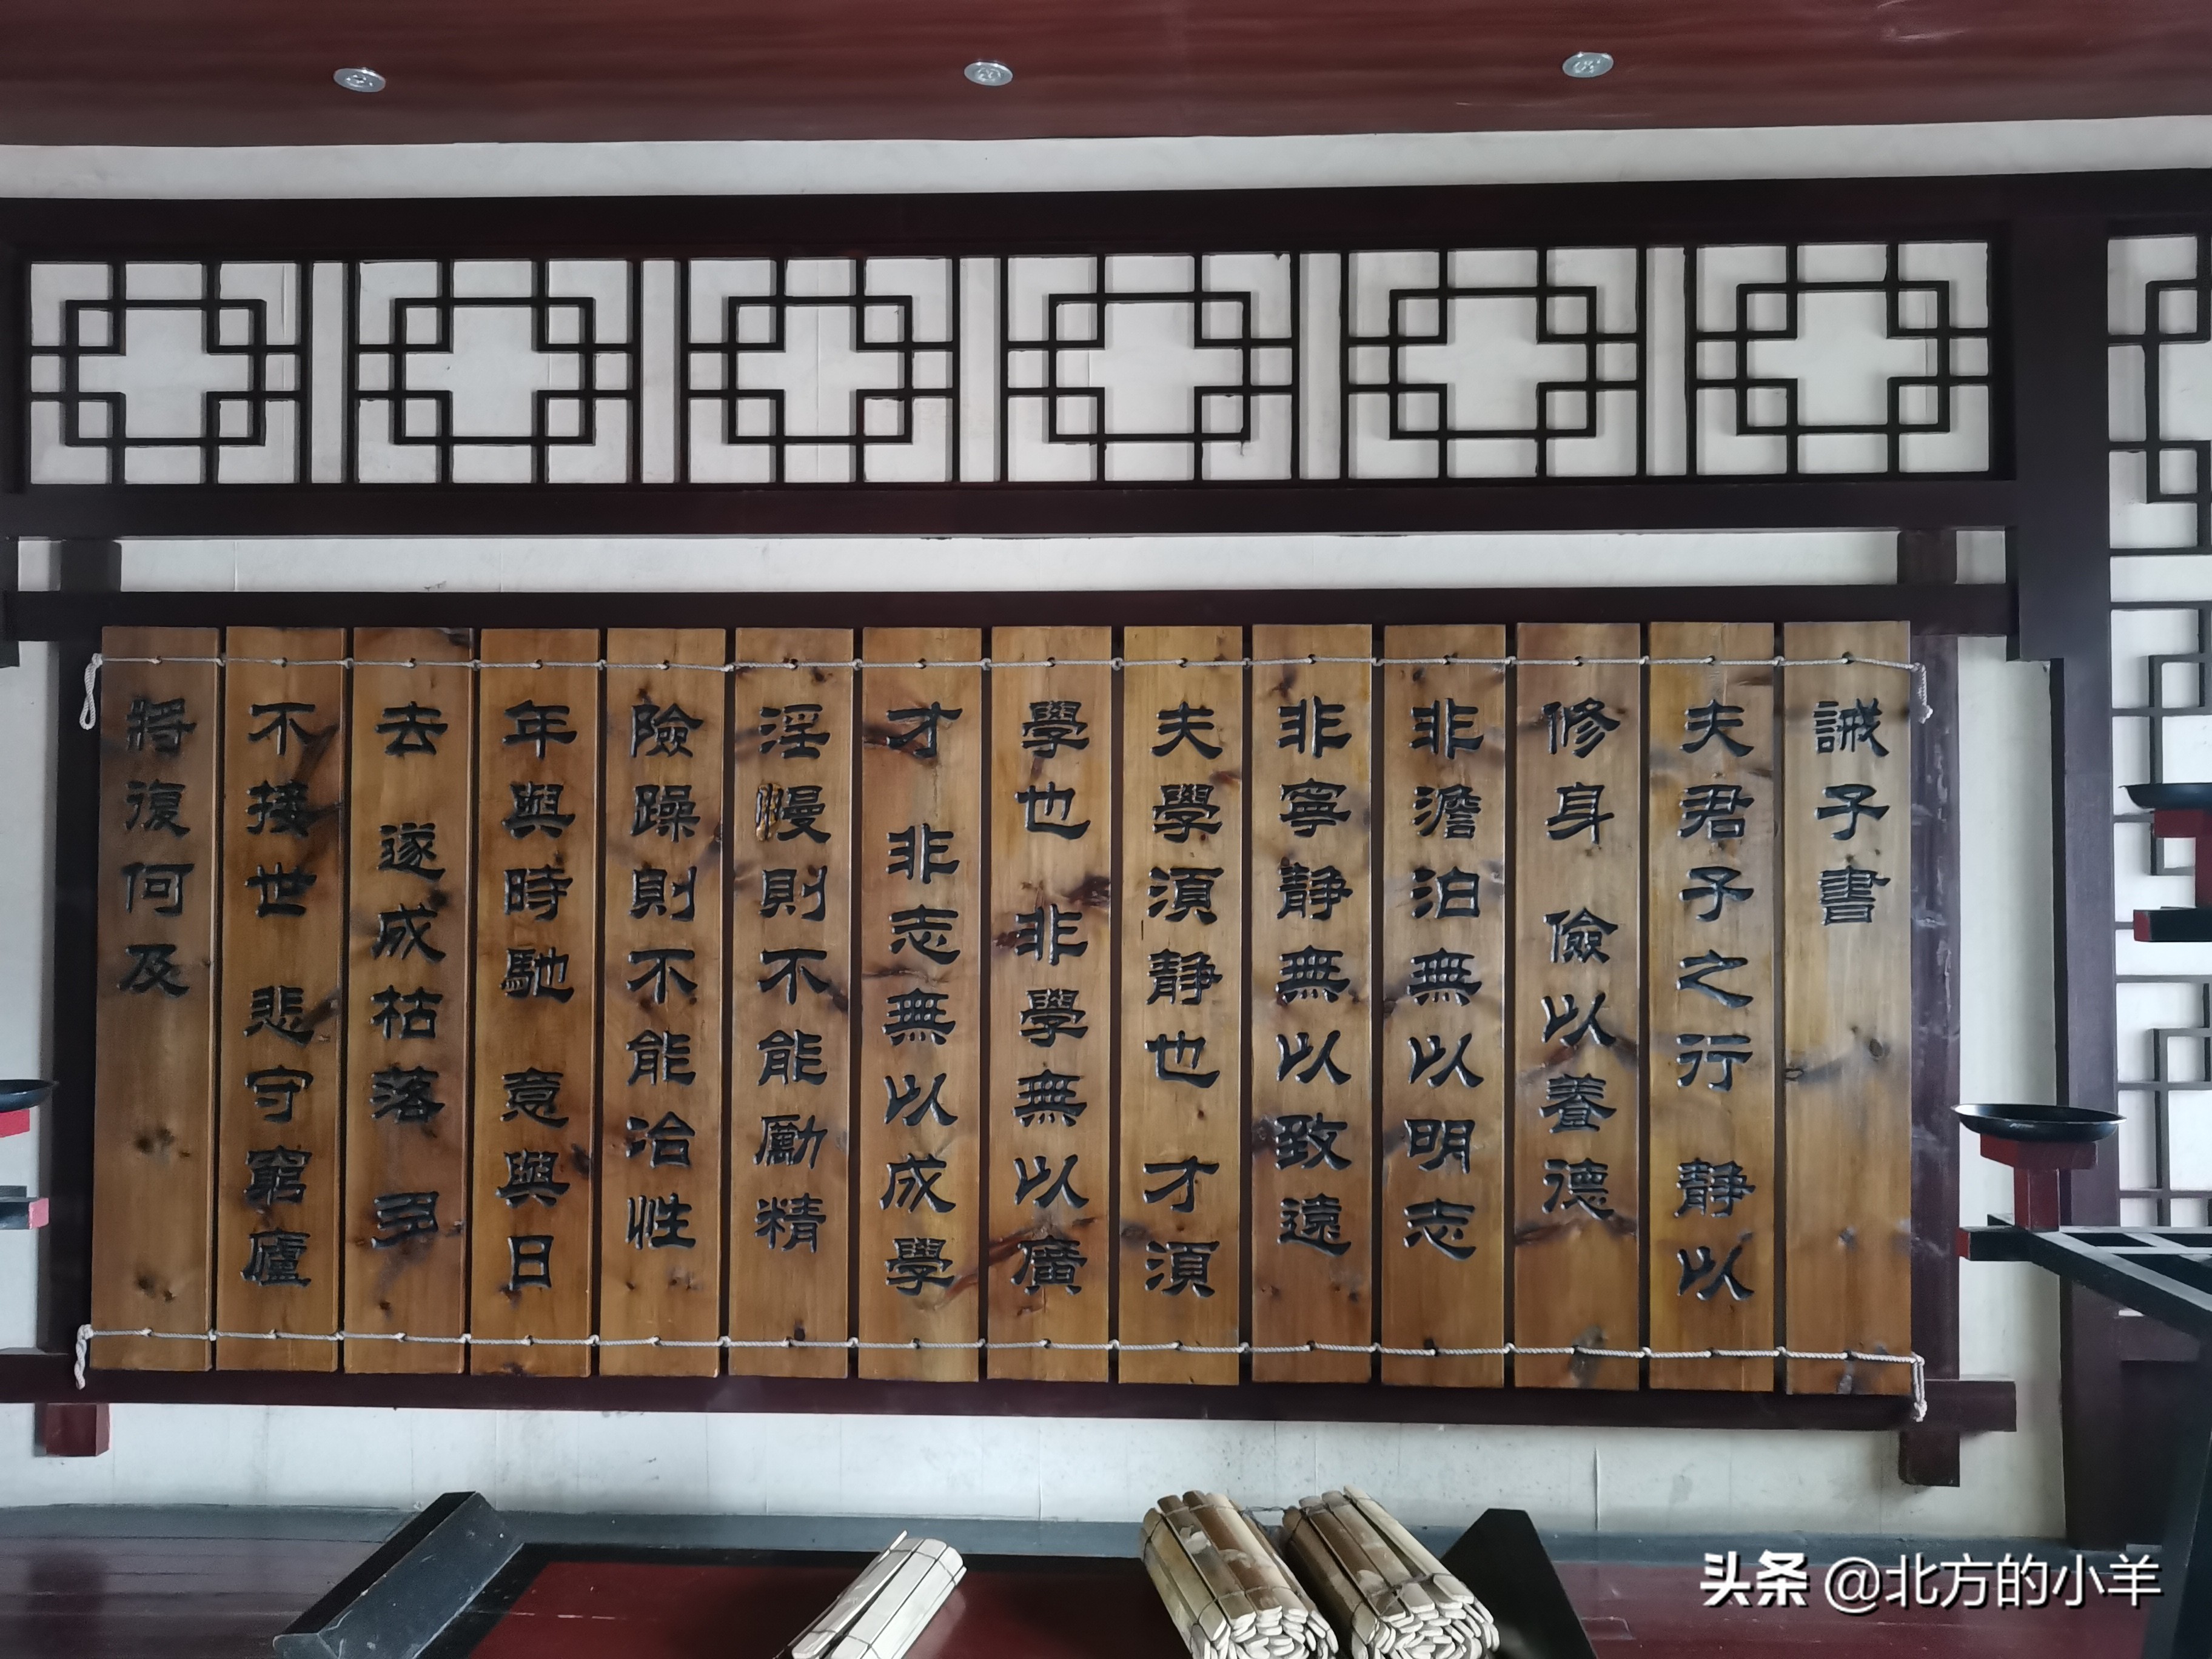 誡子書
夫君子之行 靜以
修身 儉以養德
非澹泊無以明志
非寧靜無以致遠
夫學須靜也 才須
學也 非學無以廣
才 非志無以成學
淫慢則不能勵精
險躁則不能治性
年與時馳 意與日
去 遂成枯落 多
不接世 悲守窮廬
將復何及
头条 @北方的小羊